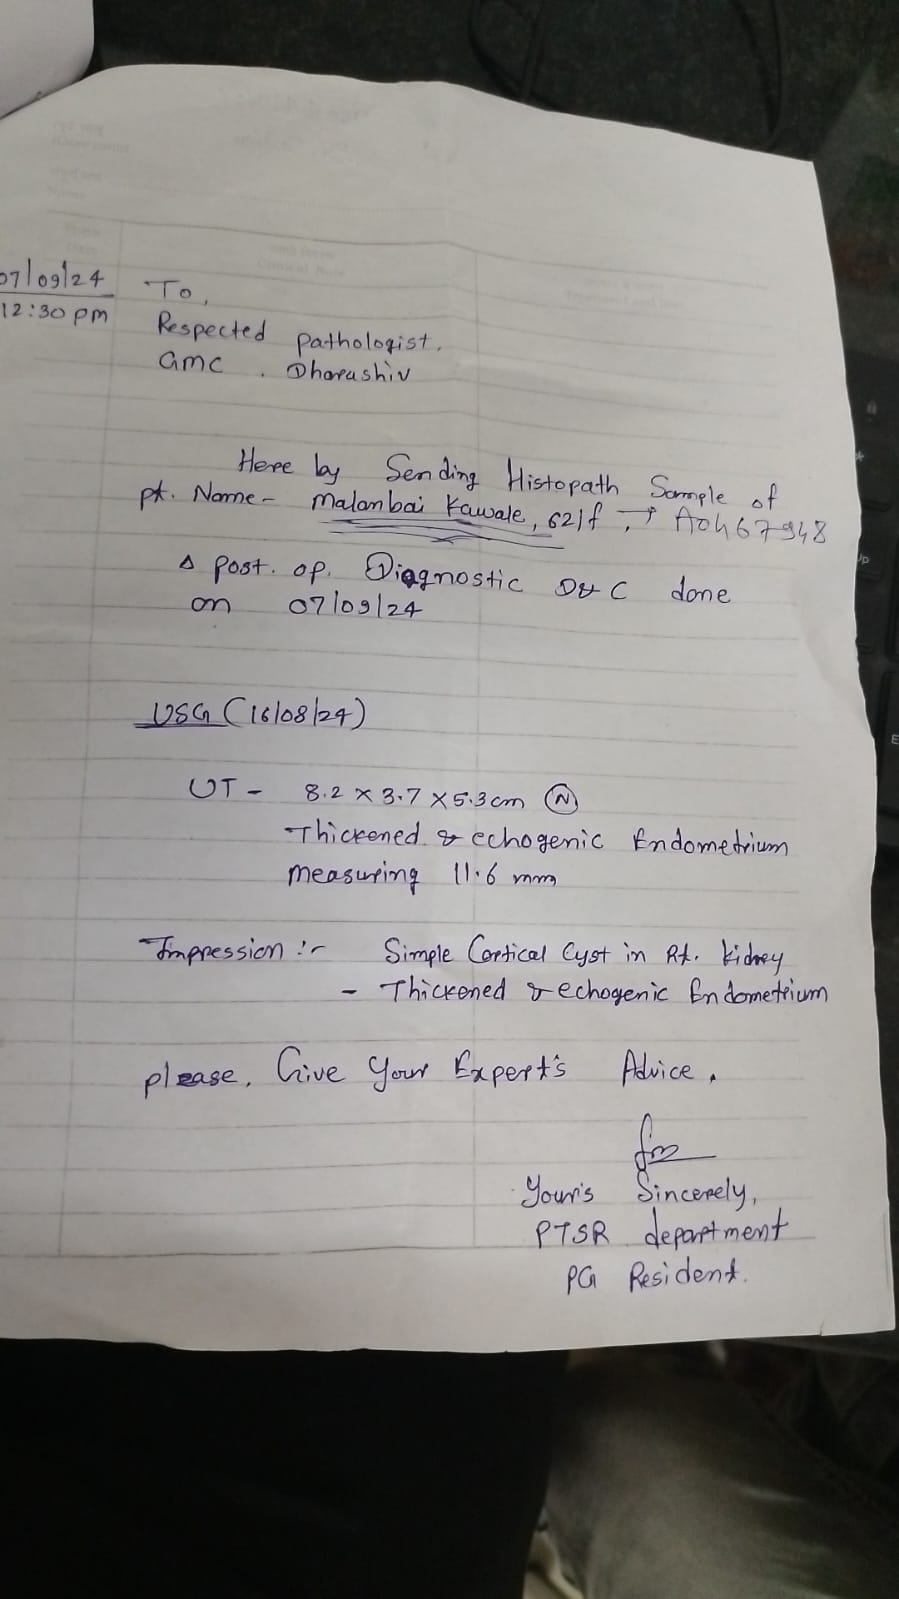 07/09/24
12:30 pm
To,
Respected pathologist.
GMC . Dharashiv
Here by Sending Histopath Sample of
pt. Name - Malanbai Kawale, 62/f,
Δ post. op. Diagnostic D&C done
on 07/09/24
USG (16/08/24)
UT - 8.2 x 3.7 x 5.3 cm (N)
Thickened & echogenic Endometrium
measuring 11.6 mm
Impression :- Simple Cortical Cyst in Rt. kidney
- Thickened & echogenic Endometrium
please, Give Your Expert's Advice.
Your's Sincerely,
PTSR department
PG Resident.